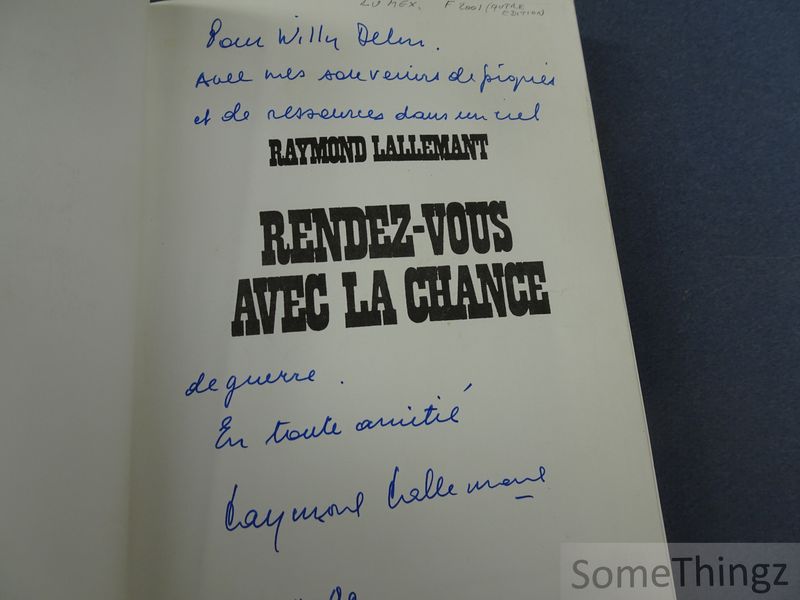 LU MEX. F 2001 (AUTRE EDITION)
Pour Willy
Avec mes souvenirs de piqués
et de ressources dans un ciel
RAYMOND LALLEMANT
RENDEZ-VOUS
AVEC LA CHANCE
de guerre.
En toute amitié
Raymond Lallemant
SomeThingz